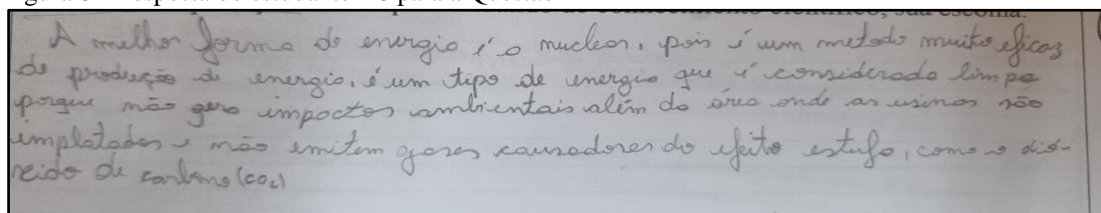 A melhor forma de energia é a nuclear, pois é um metodo muito eficaz
de produção de energia, é um tipo de energia que é considerada limpa
porque não gera impactos ambientais além da área onde as usinas são
implatadas e não emitem gases causadores do efeito estufa, como o dió-
xido de carbono (CO₂)